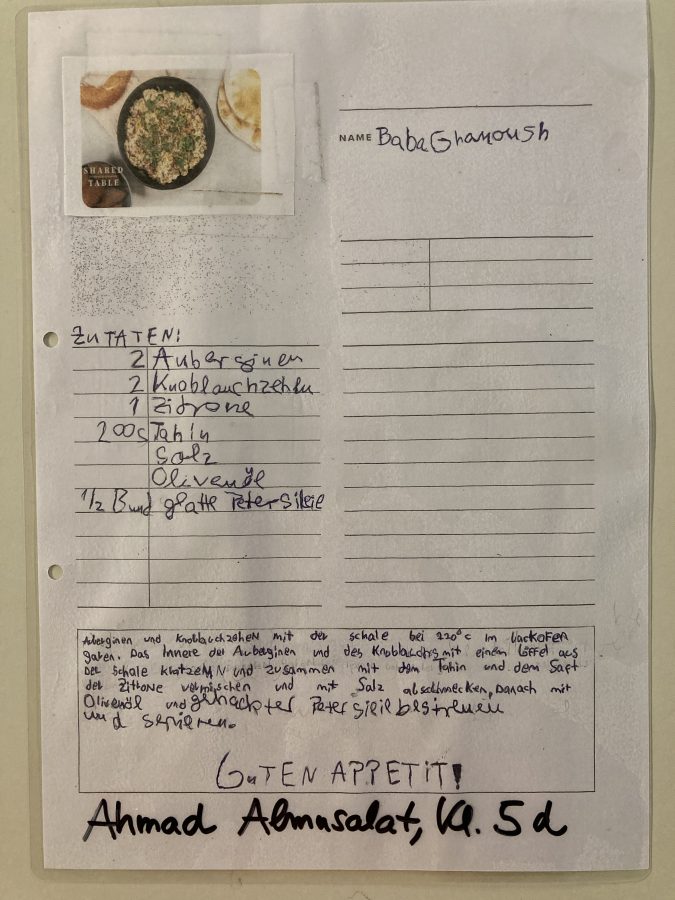 SHARED
TABLE
NAME BabaGhanoush
ZUTATEN:
2 Auberginen
2 Knoblauchzehen
1 Zitrone
200g Tahin
Salz
Olivenöl
1/2 Bund glatte Petersilie
Auberginen und Knoblauchzehen mit der schale bei 220°c im backofen
garen. Das Innere der Auberginen und des Knoblauchs mit einem Löffel aus
der schale kratzen und zusammen mit dem Tahin und dem Saft
der Zitrone vermischen und mit Salz abschmecken, Danach mit
Olivenöl und gehackter Petersilie bestreuen
und servieren.
GUTEN APPETIT!
Ahmad Almusalat, Kl. 5d